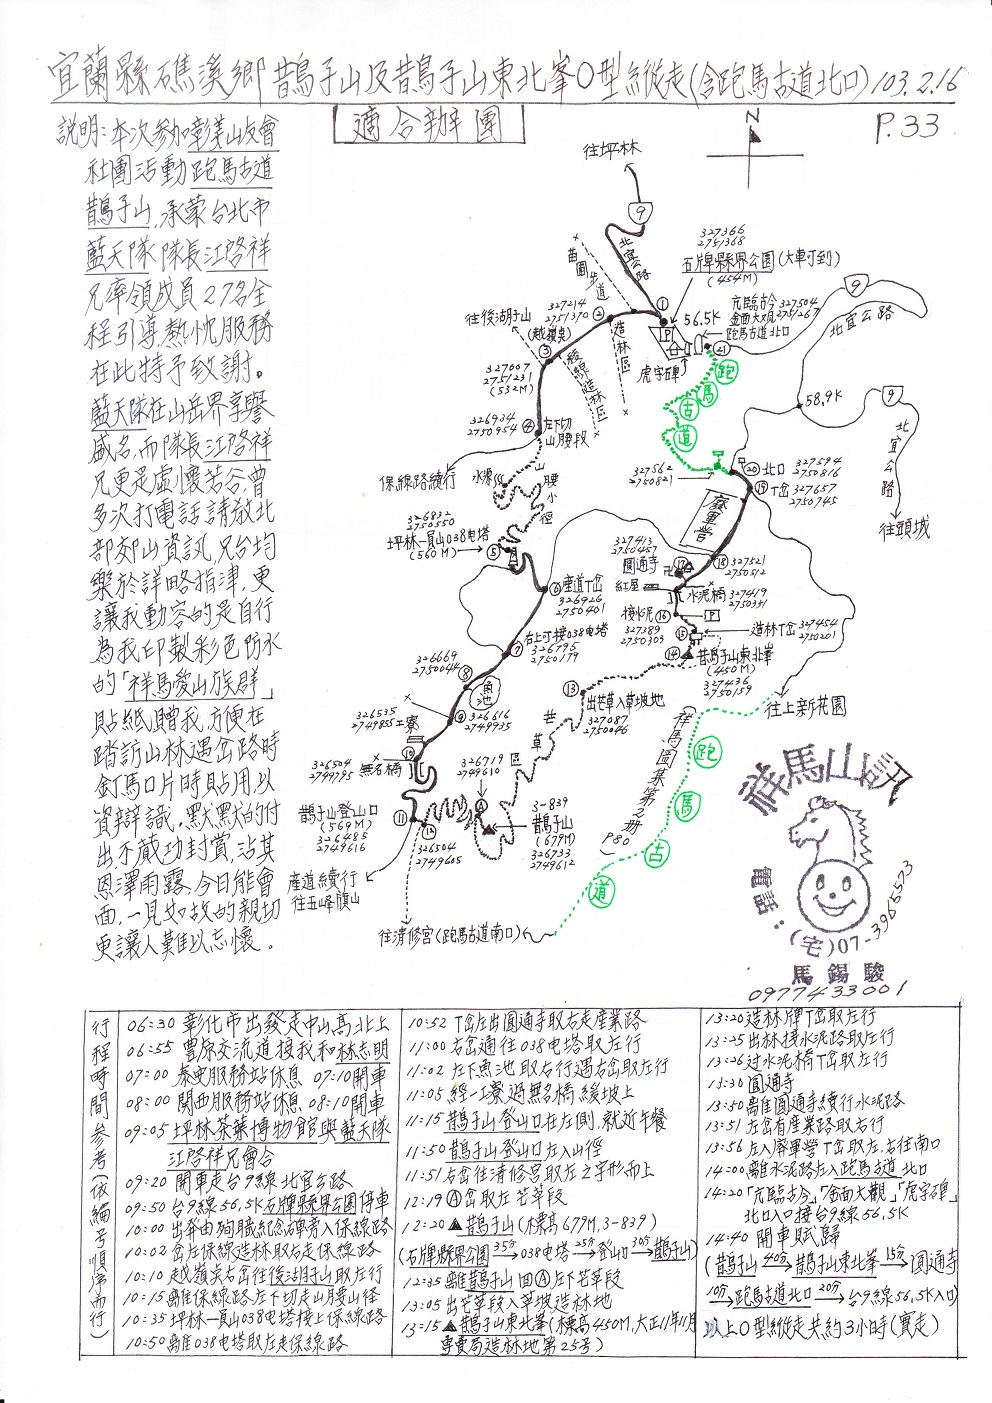 宜蘭縣礁溪鄉 鵲子山及鵲子山東北峯O型縱走(含跑馬古道北口)103.2.16
適合辦團
P.33
說明:本次參加彰美山友會
社團活動跑馬古道
鵲子山,承蒙台北市
藍天隊隊長江啓祥
兄率領成員27名全
程引導,熱忱服務
在此特予致謝。
藍天隊在山岳界享譽
盛名,而隊長江啓祥
兄更是虛懷若谷,曾
多次打電話請教北
部郊山資訊,兄台均
樂於詳略指津,更
讓我動容的是自行
為我印製彩色防水
的「祥馬愛山族群」
貼紙贈我,方便在
踏訪山林遇岔路時
釘馬口片時貼用,以
資辯識。默默的付
出不蕆功封賞,沾其
恩澤雨露,今日能會
面,一見如故的親切
更讓人難以忘懷。
N
往坪林
9
北宜公路
327366
2751368
石牌縣界公園(大車可到)
(454M)
苗圃步道
①
56.5K
亢臨古今 327504
金面大觀 2751267
跑馬古道北口
㉑
9
北宜公路
往後湖子山
327214
2751370
②
(越嶺点)
造林區
稜線造林區
P
虎字碑
跑馬古道
③
327007
2751231
(532M)
326934
2750954
④
左下切
山腰段
58.9K
9
北宜公路
往頭城
保線路續行
水源
山腰小徑
327562
2750821
⑳北口
327594
2750816
⑲T岔 327657
2750745
326832
2750550
坪林-員山038电塔
(560M)
⑤
廢軍營
327413
2750457
圓通寺
⑰
卍
⑱
327521
2750512
紅屋
水泥橋 327419
2750331
⑥產道T岔
326926
2750401
接水泥 ⑯
P
327389
2750303
⑮
造林T岔 327454
2750201
⑭
鵲子山東北峯
(450M)
327436
2750159
右上可接038电塔
⑦ 326795
2750179
326669
2750044
⑧
魚池
⑬
出芒草入草坡地
327087
2750046
往上新花園
326535
2749855工寮
⑨
326616
2749935
芒草區
(祥馬圖集第2册P80)
跑馬古道
326504
2749795
⑩
無名橋
326719
2749610
A
鵲子山登山口
(569M)
326485
2749616
⑪
⑫
326504
2749605
3-839
鵲子山
(679M)
326733
2749612
產道續行
往五峰旗山
往清修宮(跑馬古道南口)
祥馬山訊
電話:(宅)07-3965573
馬錫駿
0977433001
行程時間參考(依編号順序而行)
06:30 彰化市出發走中山高北上
06:55 豐原交流道接我和林志明
07:00 泰安服務站休息 07:10開車
08:00 關西服務站休息 08:10開車
09:05 坪林茶葉博物館與藍天隊
江啓祥兄會合
09:20 開車走台9線北宜公路
09:50 台9線56,5K石牌縣界公園停車
10:00 出發由殉職紀念碑旁入保線路
10:02 岔左保線造林取右走保線路
10:10 越嶺尖右岔往後湖子山取左行
10:15 離保線路左下切走山腰小徑
10:35 坪林-員山038电塔接上保線路
10:50 離038电塔取左走保線路
10:52 T岔左出圓通寺取右走產業路
11:00 右岔通往038电塔取左行
11:02 左下魚池取右行遇右岔取左行
11:05 經一工寮過無名橋緩坡上
11:15 鵲子山登山口在左側,就近午餐
11:50 鵲子山登山口左入山徑
11:51 右岔往清修宮取左之字形而上
12:19 Ⓐ岔取左芒草段
12:20 ▲鵲子山(標高679M,3-839)
(石牌縣界公園 35分→ 038电塔 25分→ 登山口 30分→ 鵲子山)
12:35 離鵲子山回Ⓐ左下芒草段
13:05 出芒草段入草坡造林地
13:15 ▲鵲子山東北峯(標高450M,大正11年11月
專賣局造林地第25号)
13:20 造林牌T岔取左行
13:25 出林接水泥路取左行
13:26 过水泥橋T岔取左行
13:30 圓通寺
13:50 離圓通寺續行水泥路
13:51 左岔有產業路取右行
13:56 左入廢軍營T岔取左,右往南口
14:00 離水泥路左入跑馬古道北口
14:20「亢臨古今」「金面大觀」「虎字碑」
北口入口接台9線56,5K
14:40 開車賦歸
(鵲子山 40分→ 鵲子山東北峯 15分→ 圓通寺
10分→ 跑馬古道北口 20分→ 台9線56,5K入口)
以上O型縱走共約3小時(實走)